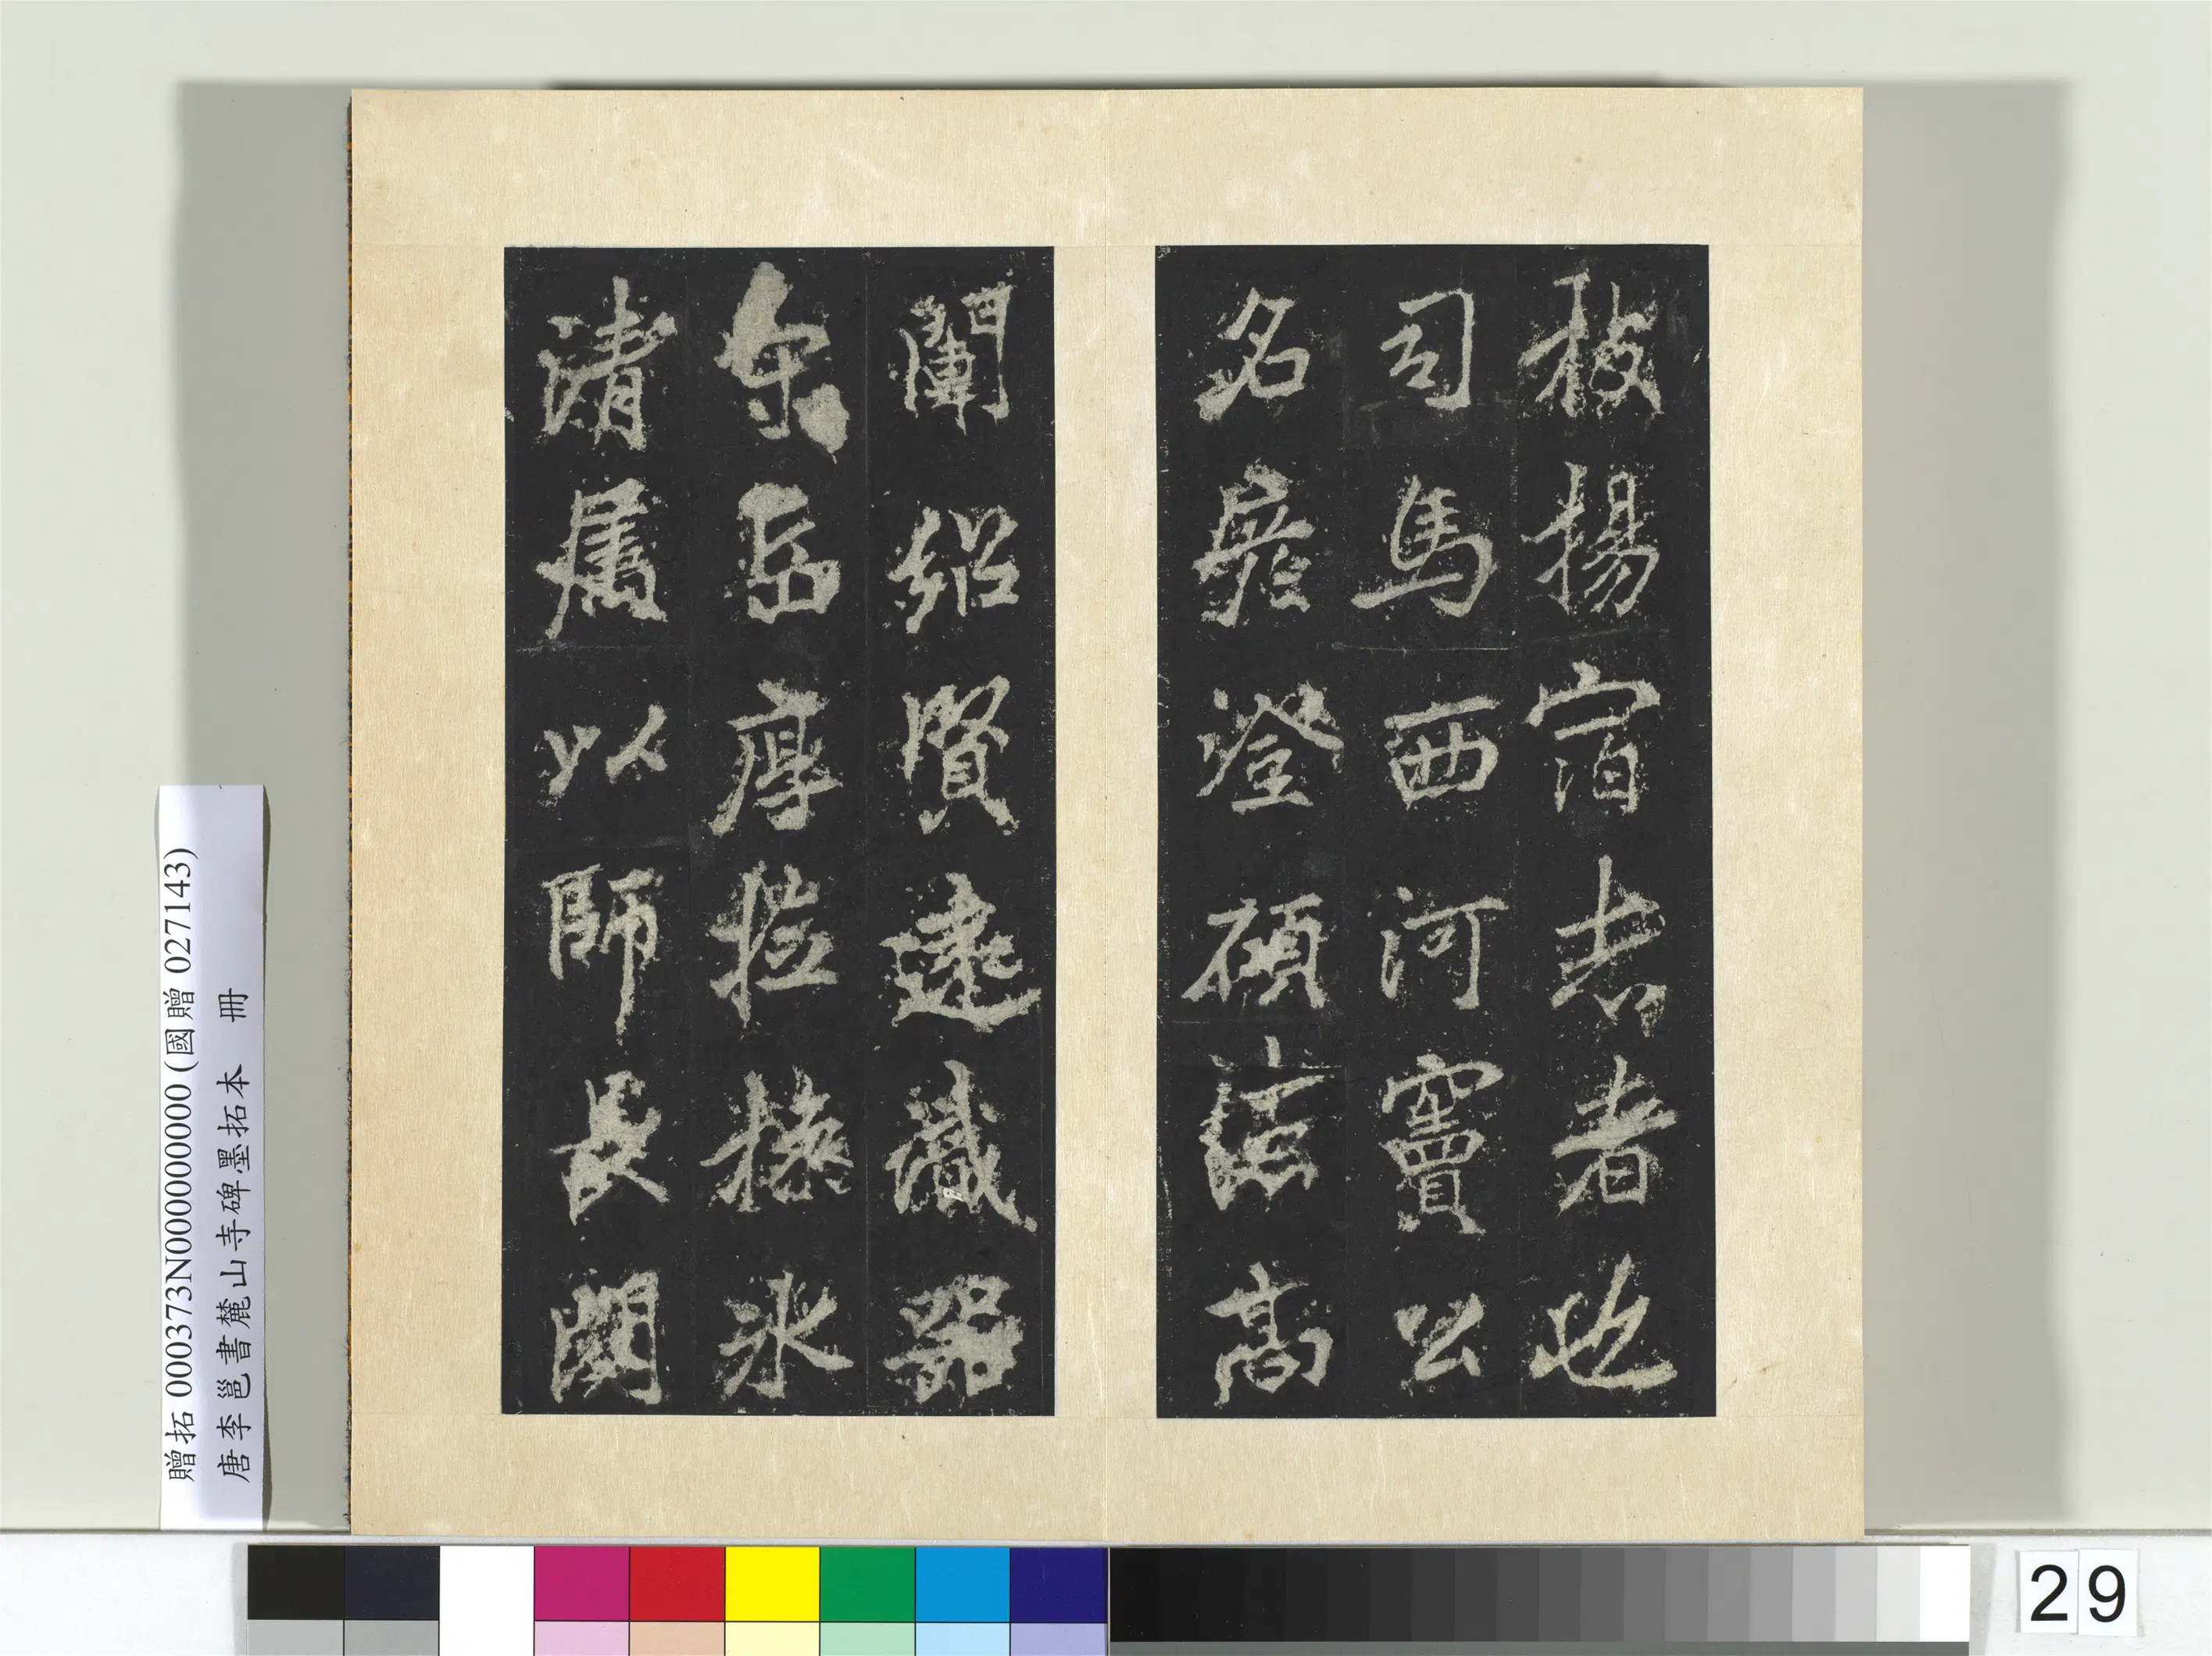 披揚宿志者也
司馬西河竇公
名彥澄碩高
闡紹賢遠識器
宇岳厚撿操冰
清屬以師長闕
贈拓 000373N000000000 (國贈 027143)
唐李邕書麓山寺碑墨拓本 冊
29